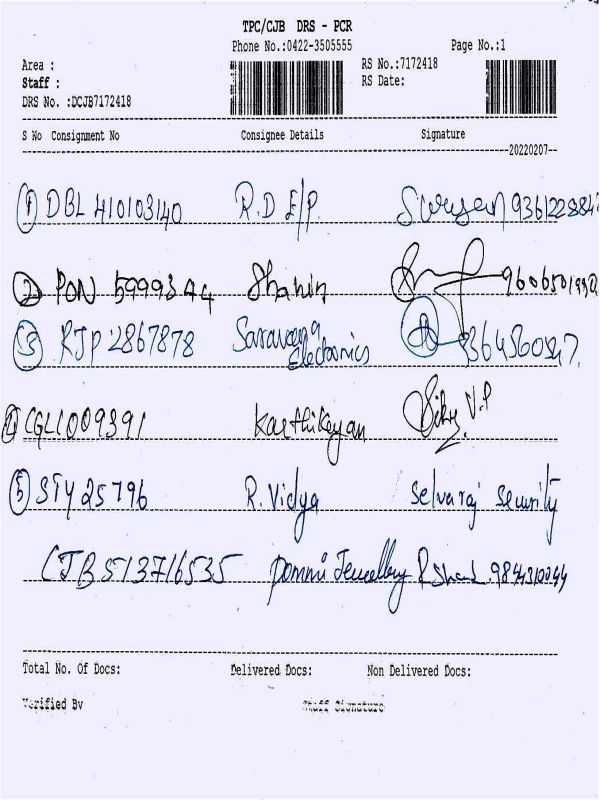 TPC/CJB DRS - PCR
Phone No.:0422-3505555 Page No.:1
Area : RS No.:7172418
Staff : RS Date:
DRS No. :DCJB7172418
S No Consignment No Consignee Details Signature
20220207
1 DBL 410103140 R.D E/P.
2 PON 5999344 Shanin
3 RJP 2867878 Saravana Electronics
4 CGL1009391 Karthikeyan V.P
5 STY 25796 R. Vidya Selvaraj Security
CJB 513716535 Pommi Jewellery 9844310044
Total No. Of Docs: Delivered Docs: Non Delivered Docs:
Verified By Staff Signature